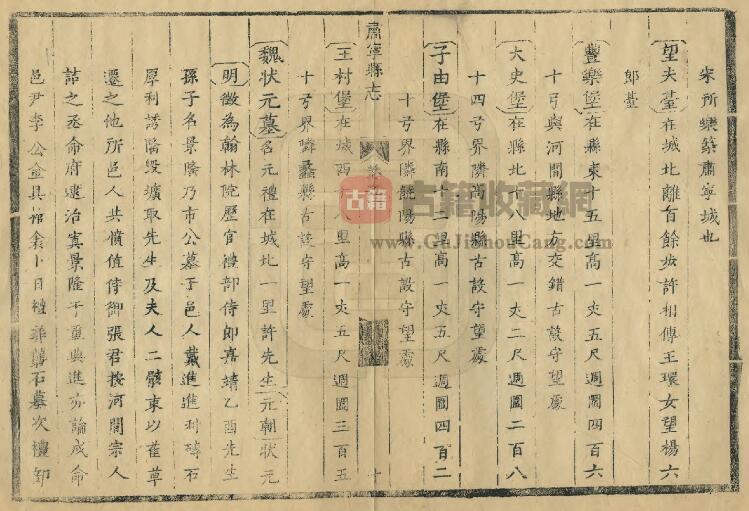 宋所築築肅寧城也
望夫臺在城北離百餘步許相傳王環女望楊六
郎臺
豐樂堡在縣東十五里高一丈五尺週圍四百六
十弓與河間縣地方交錯古設守望處
大史堡在縣北十八里高一丈二尺週圍二百八
十四弓界隣高陽縣古設守望處
子由堡在縣南十二里高一丈五尺週圍四百二
十弓界隣饒陽縣古設守望處
肅寧縣志
十
王村堡在城西十八里高一丈五尺週圍三百五
十弓界隣蠡縣古設守望處
魏狀元墓名元禮在城北一里許先生元朝狀元
明徵為翰林院歷官禮部侍郎嘉靖乙酉先生
孫子名景隆乃市公墓于邑人戴進進利磚石
厚利誘隆毀壙取先生及夫人二骸束以萑草
遷之他所邑人共憤值侍御張君按河間宗人
訴之丞命府逮治寘景隆于重典進亦論戍命
邑尹李公金具棺衾卜日禮葬龔石墓次禮卸
古籍
古籍收藏網
www.GuJiShouCang.com